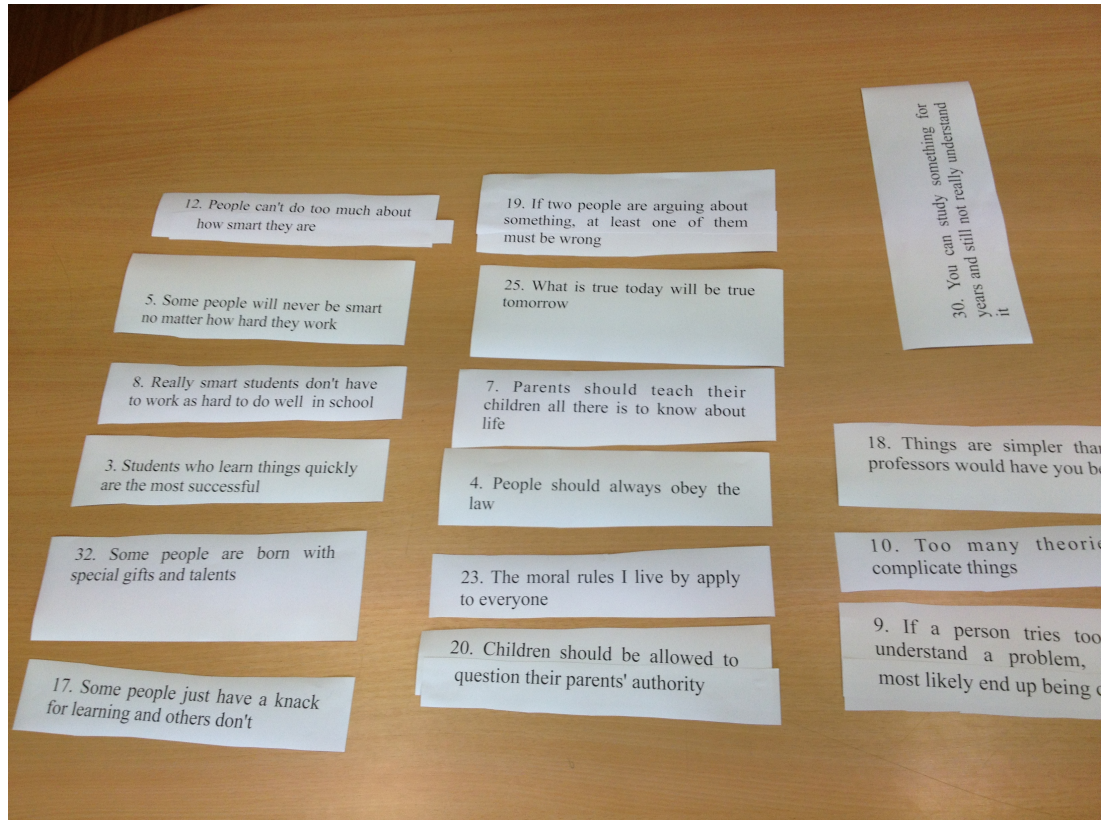 12. People can't do too much about
how smart they are
5. Some people will never be smart
no matter how hard they work
8. Really smart students don't have
to work as hard to do well in school
3. Students who learn things quickly
are the most successful
32. Some people are born with
special gifts and talents
17. Some people just have a knack
for learning and others don't
19. If two people are arguing about
something, at least one of them
must be wrong
25. What is true today will be true
tomorrow
7. Parents should teach their
children all there is to know about
life
4. People should always obey the
law
23. The moral rules I live by apply
to everyone
20. Children should be allowed to
question their parents' authority
30. You can study something for
years and still not really understand
it
18. Things are simpler
professors would have you
10. Too many
complicate things
9. If a person tries too
understand a problem,
most likely end up being